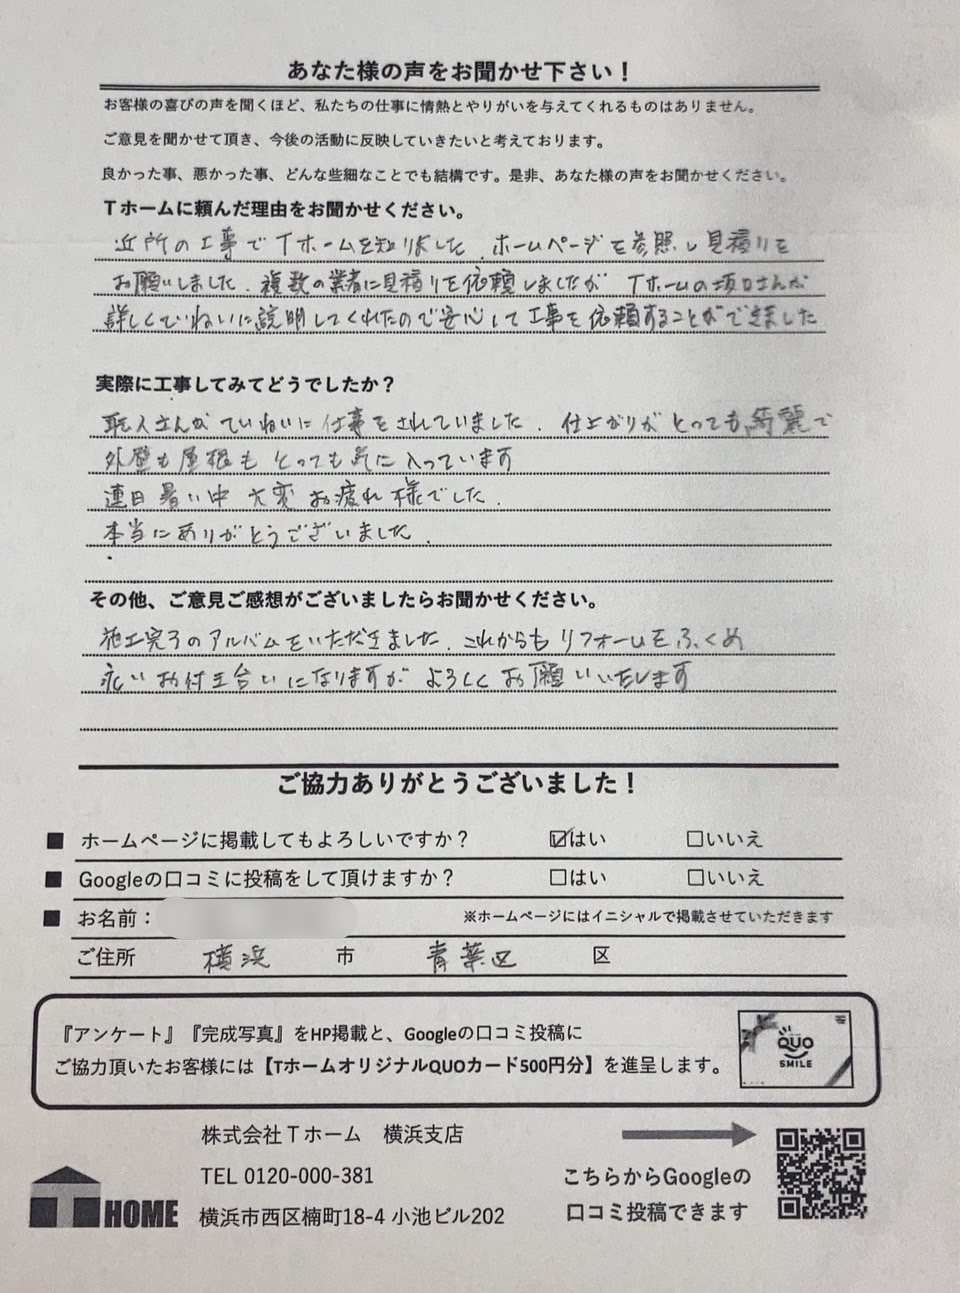 あなた様の声をお聞かせ下さい！
お客様の喜びの声を聞くほど、私たちの仕事に情熱とやりがいを与えてくれるものはありません。
ご意見を聞かせて頂き、今後の活動に反映していきたいと考えております。
良かった事、悪かった事、どんな些細なことでも結構です。是非、あなた様の声をお聞かせください。
Ｔホームに頼んだ理由をお聞かせください。
近所の工事でTホームを知りました．ホームページを参照し見積りを
お願いしました．複数の業者に見積りを依頼しましたが Tホームの坂口さんが
詳しくていねいに説明してくれたので安心して工事を依頼することができました
実際に工事してみてどうでしたか？
職人さんがていねいに仕事をされていました．仕上がりがとっても綺麗で
外壁も屋根もとっても気に入っています
連日暑い中 大変お疲れ様でした．
本当にありがとうございました．
その他、ご意見ご感想がございましたらお聞かせください。
施工完了のアルバムをいただきました．これからもリフォームをふくめ
永いお付き合いになりますがよろしくお願いいたします
ご協力ありがとうございました！
■ ホームページに掲載してもよろしいですか？ ☑はい □いいえ
■ Googleの口コミに投稿をして頂けますか？ □はい □いいえ
■ お名前： ※ホームページにはイニシャルで掲載させていただきます
ご住所 横浜 市 青葉区 区
『アンケート』『完成写真』をHP掲載と、Googleの口コミ投稿に
ご協力頂いたお客様には【TホームオリジナルQUOカード500円分】を進呈します。
QUO
SMILE
株式会社Ｔホーム 横浜支店
TEL 0120-000-381
横浜市西区楠町18-4 小池ビル202
こちらからGoogleの
口コミ投稿できます
T HOME